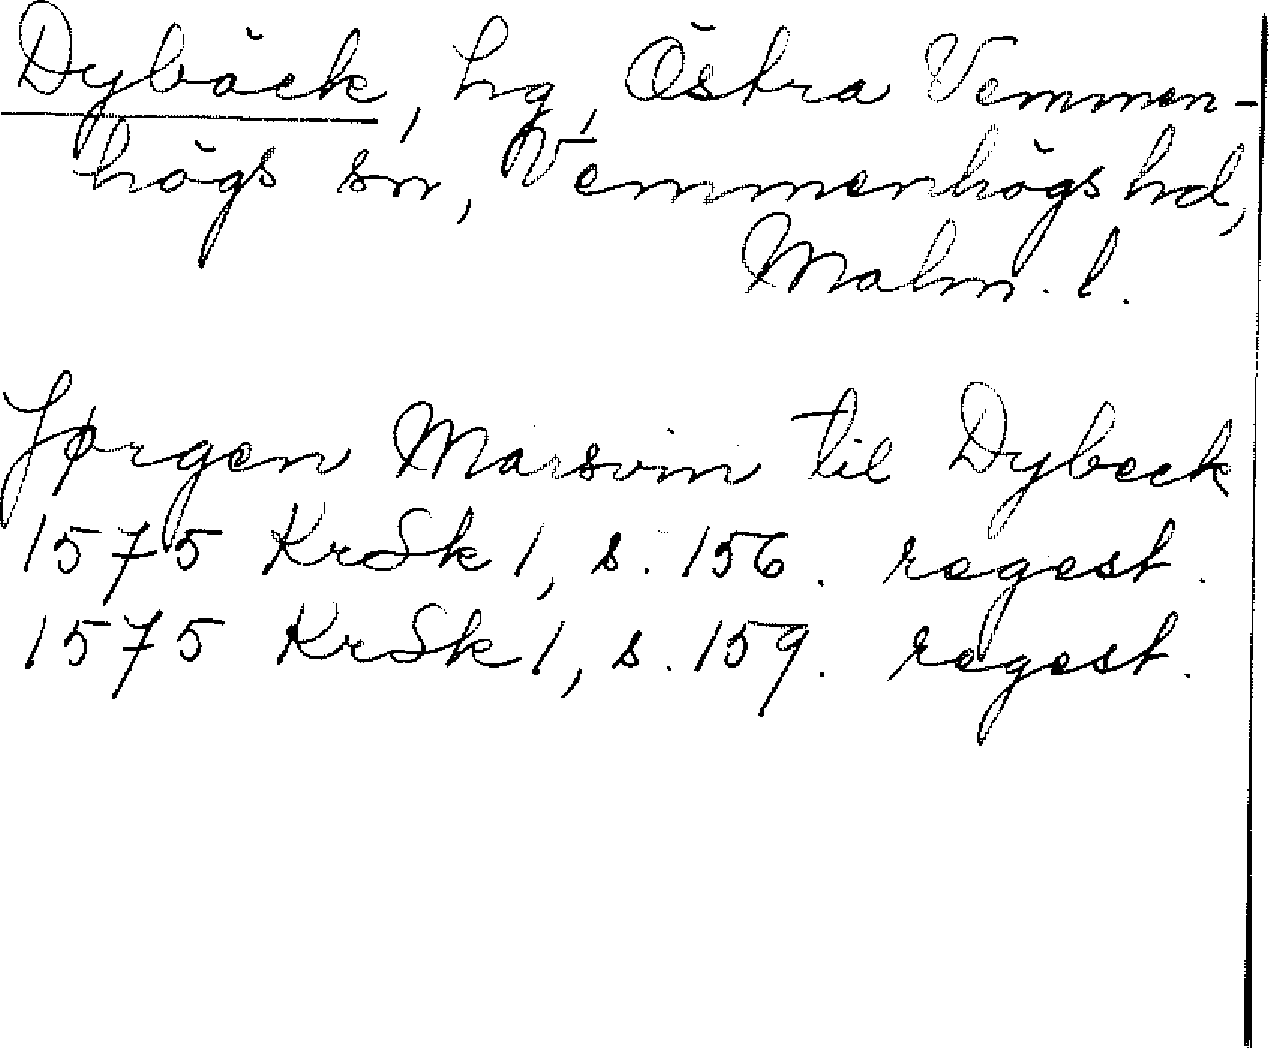 Dybäck, hg, Östra Vemmen-
högs sn, Vemmenhögs hd,
Malm. l.
Jørgen Marsvin til Dybeck
1575 KrSk 1, s. 156. regest.
1575 KrSk 1, s. 159. regest.